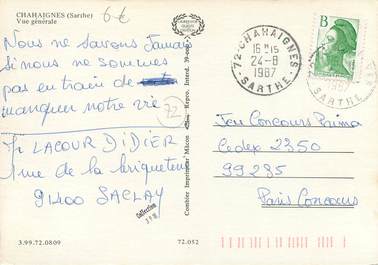 CHAHAIGNES (Sarthe)
Vue générale
6 €
Nous ne savons Jamais
si nous ne sommes
pas en train de
manquer notre vie
72
Mr LACOUR DIDIER
rue de la briqueterie
91400 SACLAY
Collection
3.99.72.0809
Combier Imprimeur Mâcon
72.052
72-CHAHAIGNES
16 H 15
24-8
1987
SARTHE
B
1987
SARTHE
Jeu Concours Prima
Cedex 2350
99285
Paris Concours